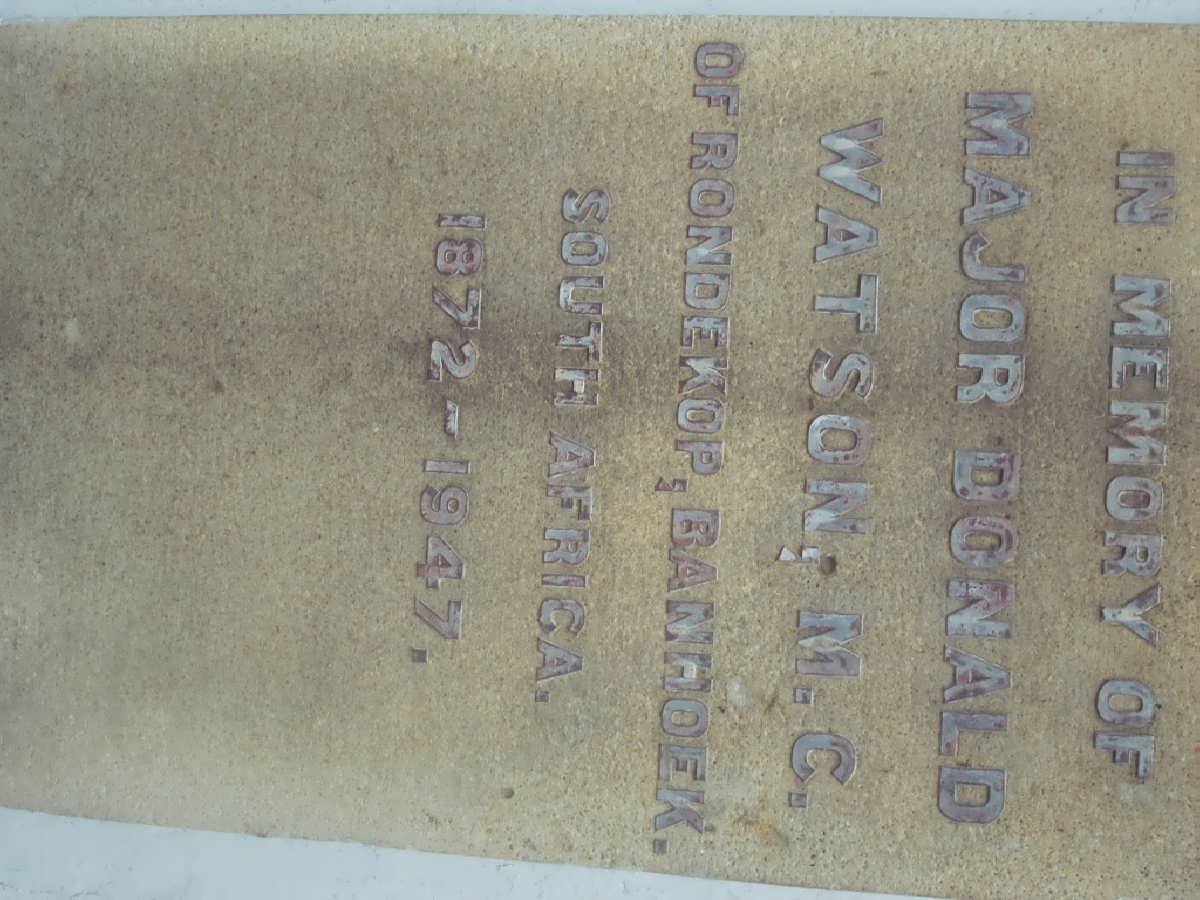 IN MEMORY OF
MAJOR DONALD
WATSON, M.C.
OF RONDEKOP, BANHOEK.
SOUTH AFRICA.
1872-1947.